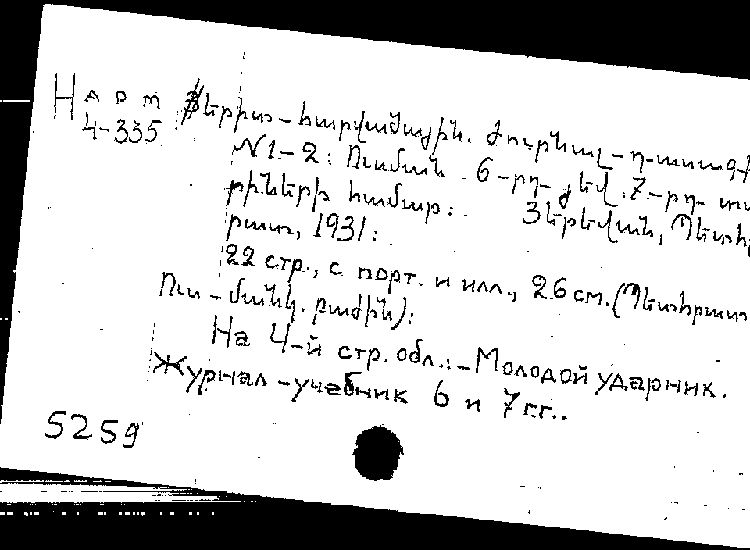 Н арм Յերիտ-հարվածային. Ժուրնալ-դասագի
4-335 N 1-2: Ուսման 6-րդ յեվ 7-րդ տա
րիների համար: Յերեվան, Պետհ
րատ, 1931:
22 стр., с порт. и илл., 26 см. (Պետհրատ
Ուս-մանկ. բաժին):
На 4-й стр. обл.:-Молодой ударник.
Журнал-учебник 6 и 7 гг..
5259